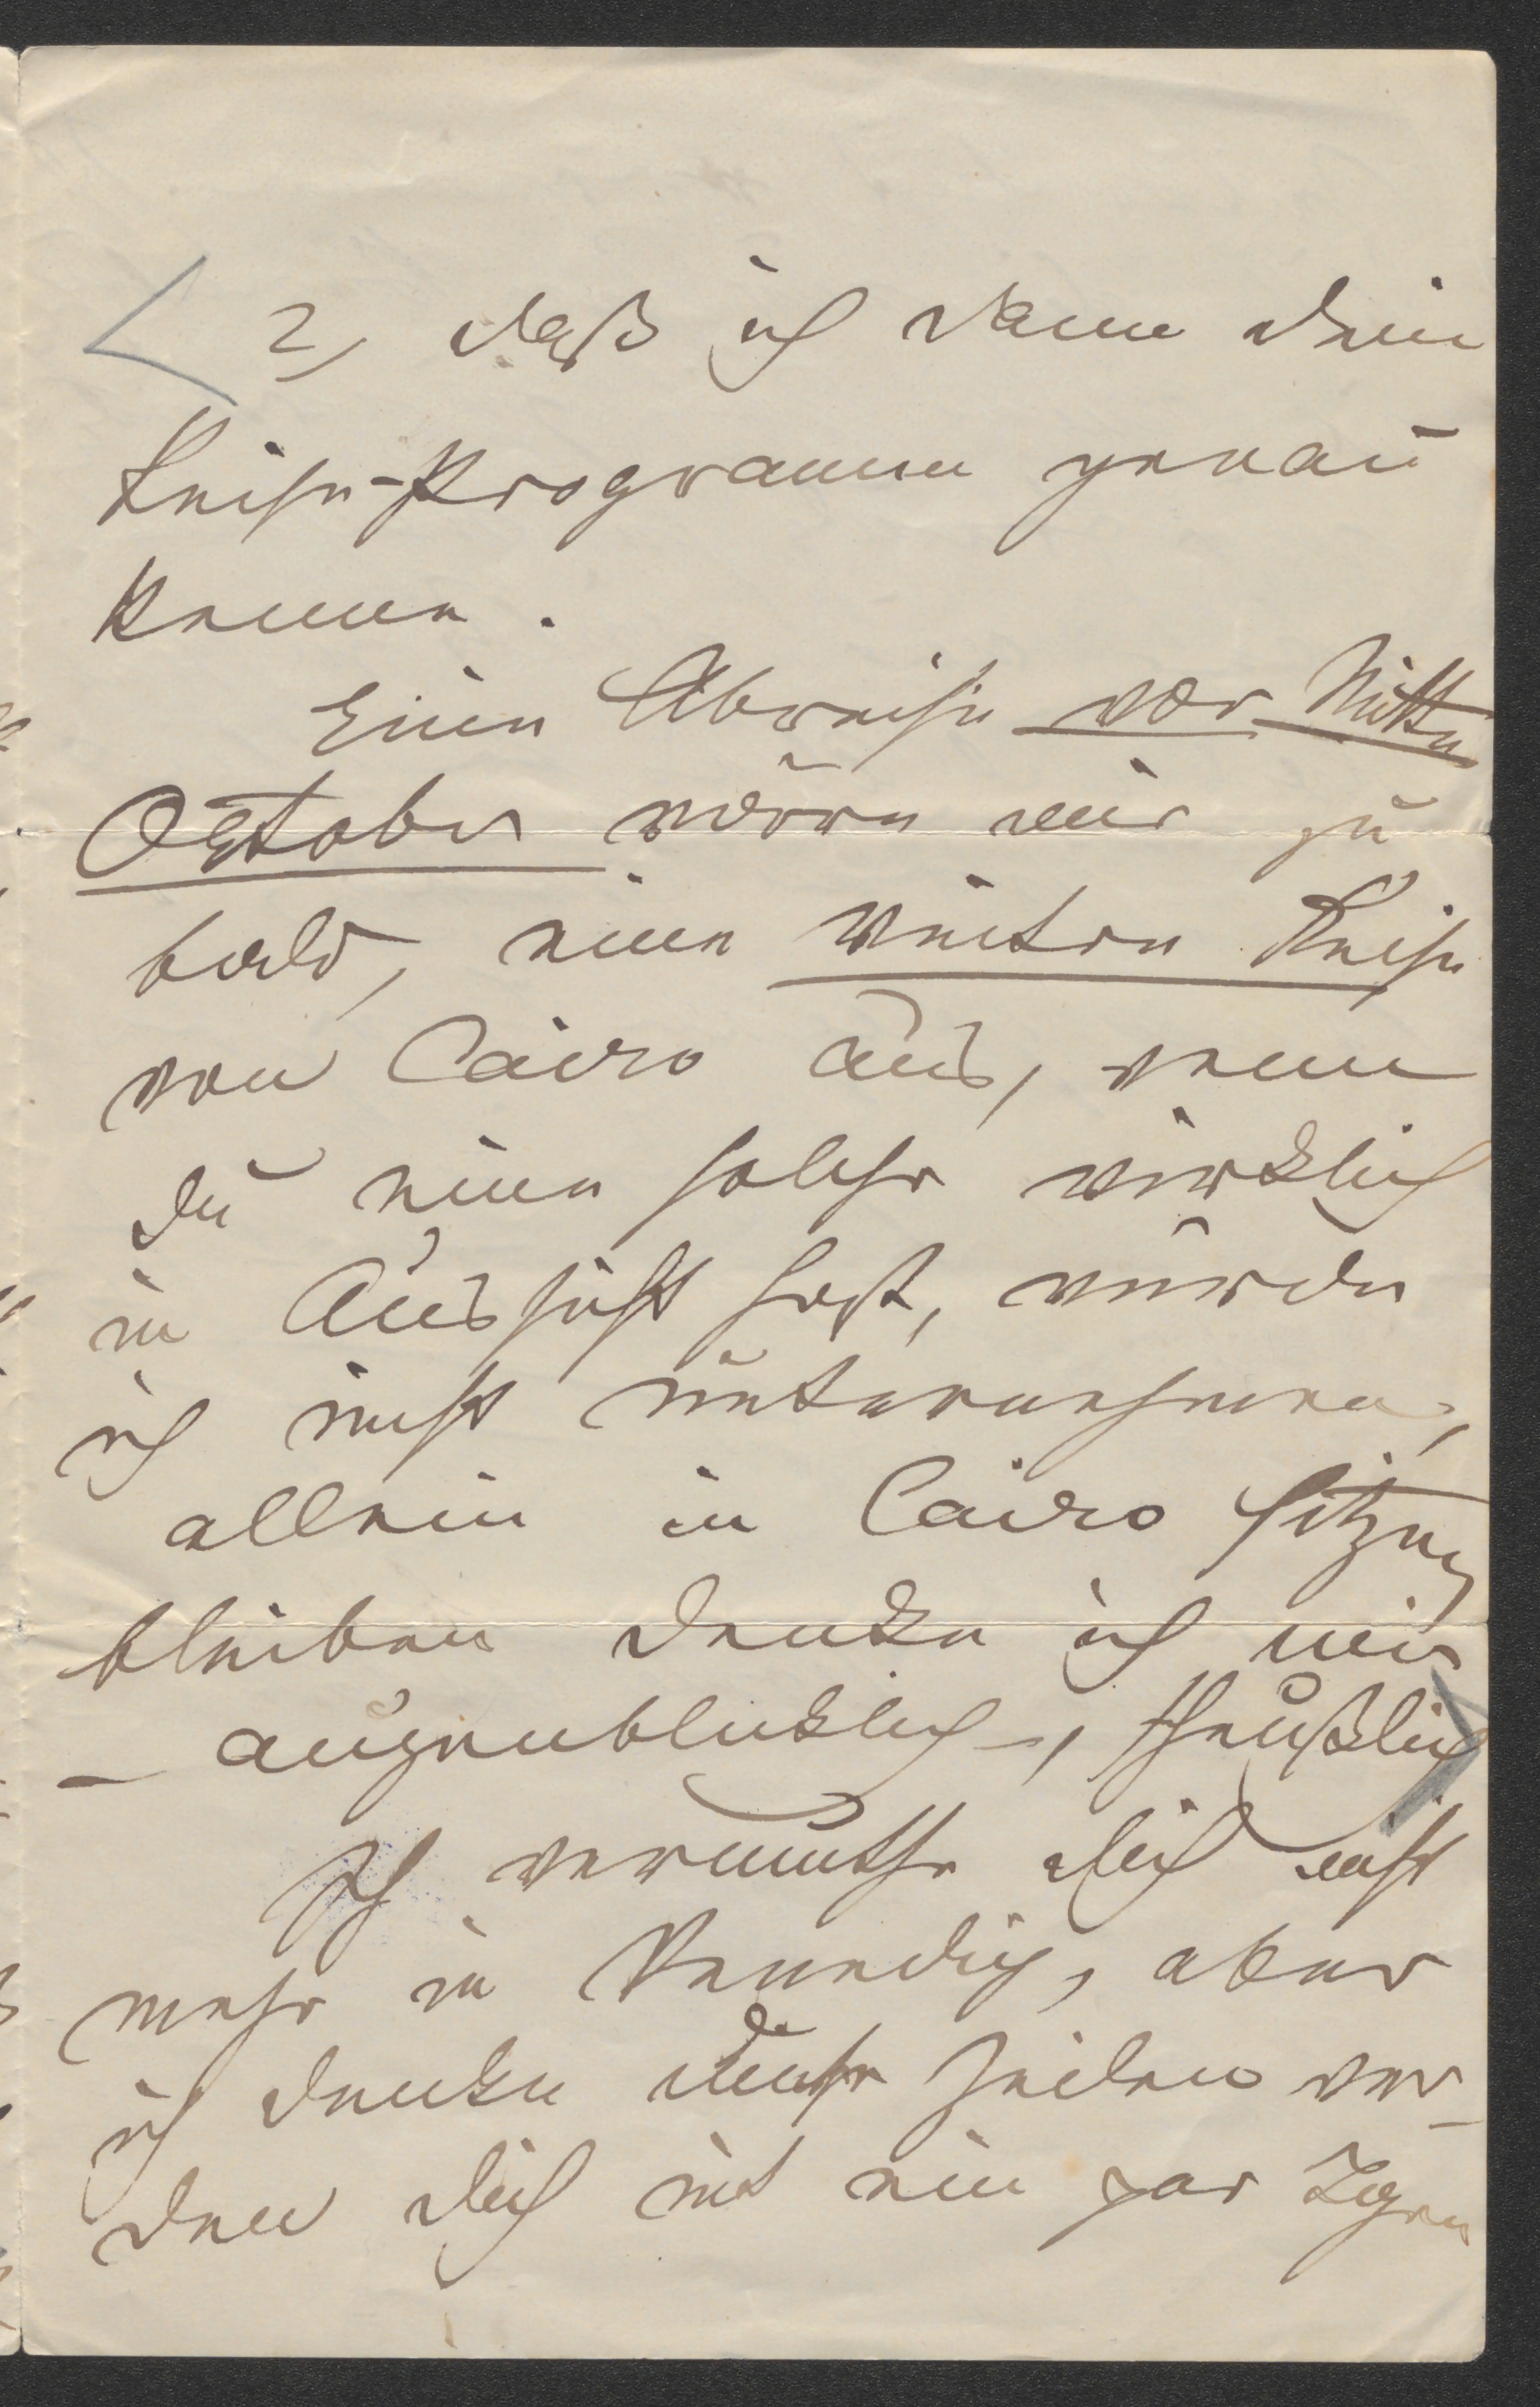 2) daß ich dann dein
Reise-Programm genau
kenne.
Eine Abreise vor Mitte
October wäre mir zu
bald, eine weitere Reise
von Cairo aus, wenn
du eine solche wirklich
in Aussicht hast, würde
ich nicht unternehmen,
allein in Cairo sitzen
bleiben denke ich mir
– augenblicklich –, scheußlich
Ich vermuthe dich nicht
mehr in Venedig, aber
ich denke diese Zeilen wer-
den dich mit ein par Tagen